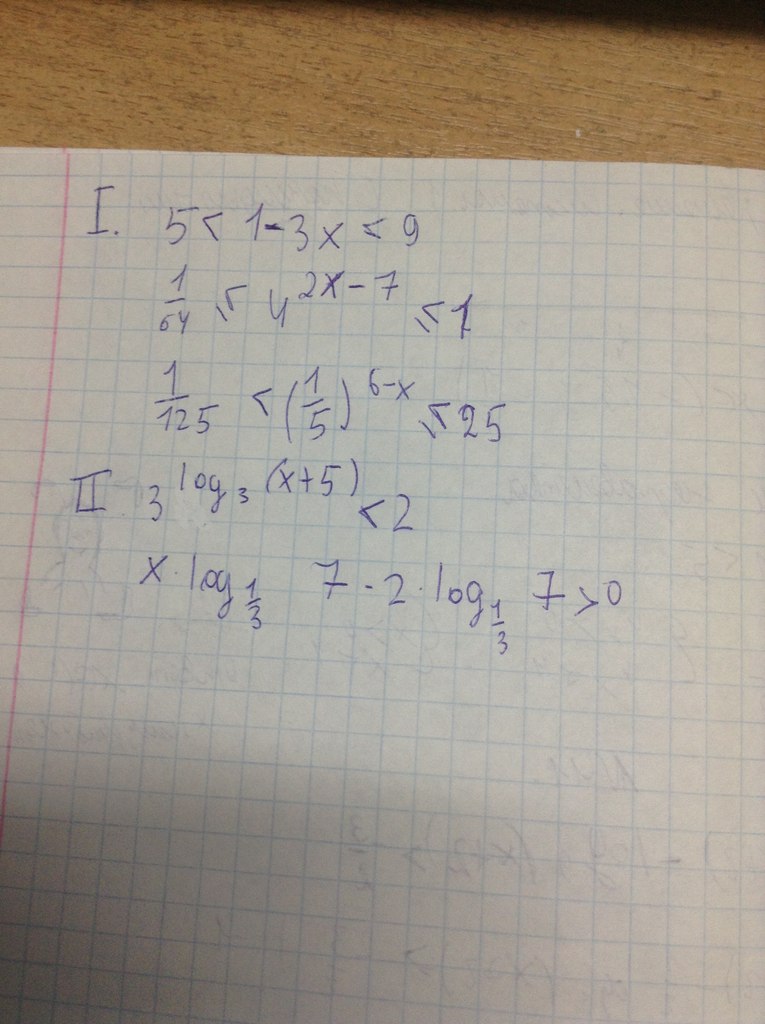 I. 5 < 1-3x < 9
1/64 ≤ 4^(2x-7) ≤ 1
1/125 < (1/5)^(6-x) ≤ 25
II 3^(log₃(x+5)) < 2
x·log_(1/3) 7 - 2·log_(1/3) 7 > 0